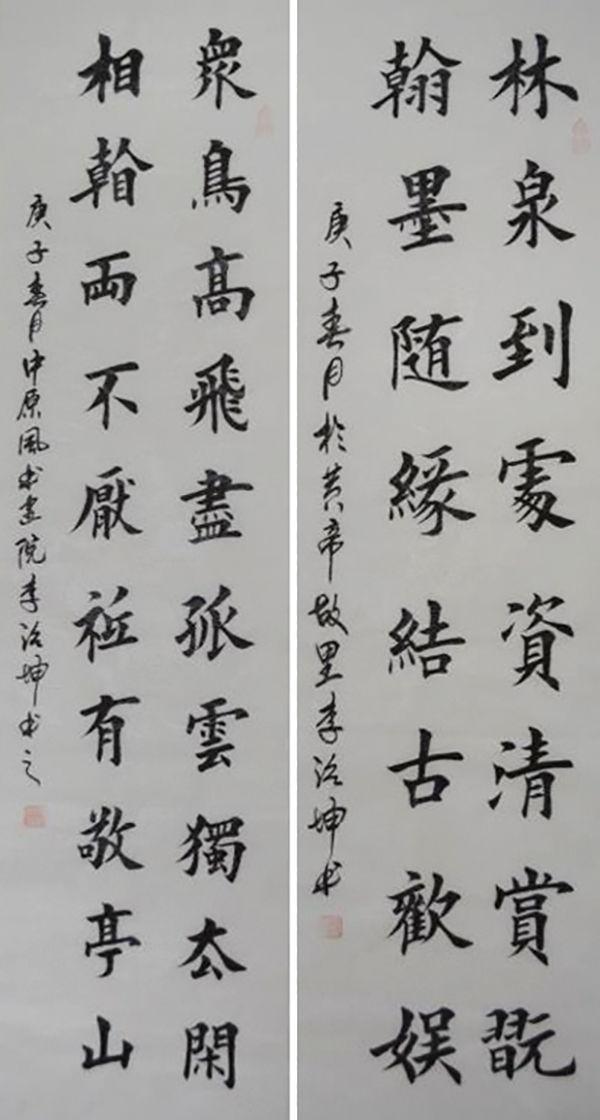 林泉到處資清賞翫
翰墨随緣結古歡娱
庚子春月於黄帝故里李治坤书
衆鳥髙飛盡孤雲獨厺閑
相看両不厭祇有敬亭山
庚子春月中原風书畫院李治坤书之